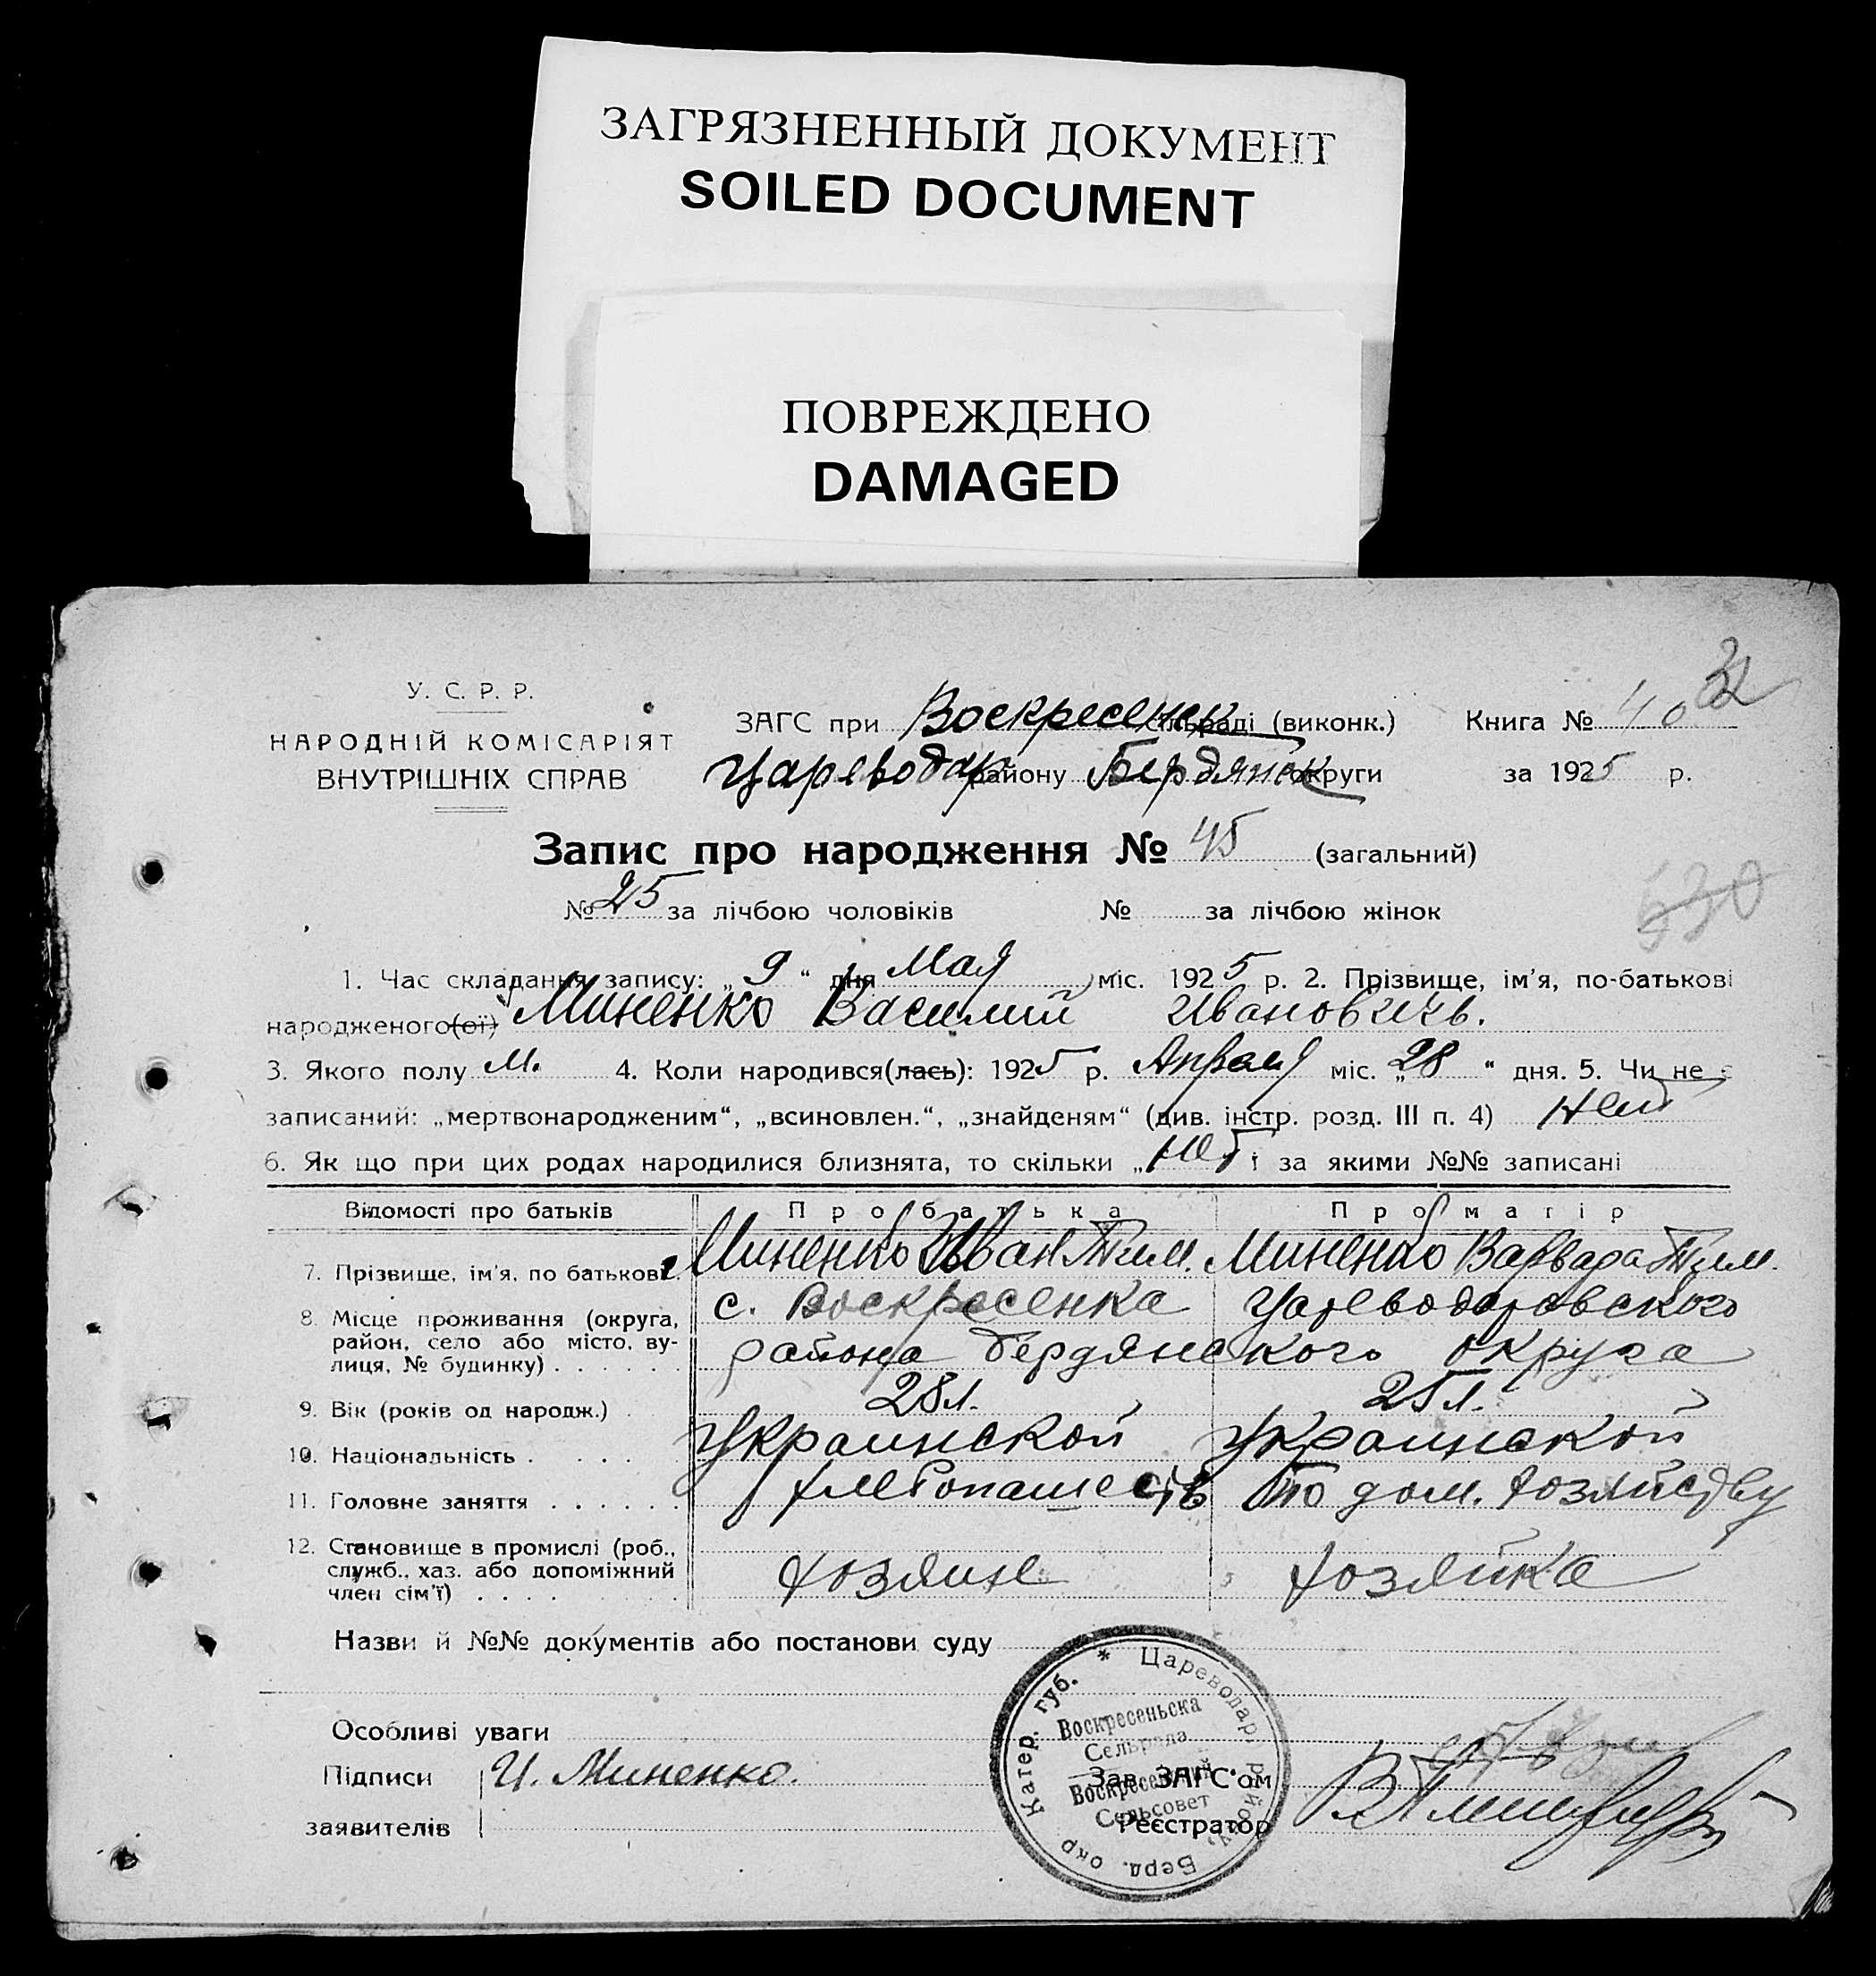 ЗАГРЯЗНЕННЫЙ ДОКУМЕНТ
SOILED DOCUMENT
ПОВРЕЖДЕНО
DAMAGED
32
У. С. Р. Р.
НАРОДНІЙ КОМІСАРІЯТ
ВНУТРІШНІХ СПРАВ
ЗАГС при Воскресенск сільраді (виконк.) Книга № 40
Цареводар району Бердянск округи за 1925 р.
Запис про народження № 45 (загальний)
№ 25 за лічбою чоловіків № за лічбою жінок
530
1. Час складання запису: „9“ дня Мая міс. 1925 р. 2. Прізвище, ім'я, по-батькові
народженого(ої) Миненко Василий Ивановичь.
3. Якого полу м. 4. Коли народився(лась): 1925 р. Апреля міс. „28“ дня. 5. Чи не є
записаний: „мертвонародженим“, „всиновлен.“, „знайденям“ (див. інстр. розд. III п. 4) Нет
6. Як що при цих родах народилися близнята, то скільки „Нет і за якими №№ записані
Відомості про батьків Про батька Про матір
7. Прізвище, ім'я, по батькові. Миненко Иван Тим. Миненко Варвара Тим.
8. Місце проживання (округа, район, село або місто, вулиця, № будинку) с. Воскресенка Цареводаровского
района Бердянского округа
9. Вік (років од народж.) 28 л. 25 л.
10. Національність Украинской Украинской
11. Головне заняття Хлебопашеств По дом. хозяйству
12. Становище в промислі (роб., служб., хаз. або допоміжний член сім'ї) хозяин хозяйка
Назви й №№ документів або постанови суду
Особливі уваги
Підписи И. Миненко.
заявителів
Зав. ЗАГС'ом
Реєстратор
* Цареводар. район. Берд. окр Катер. губ.
Воскресеньска
Сельрада
Воскресенский
Сельсовет